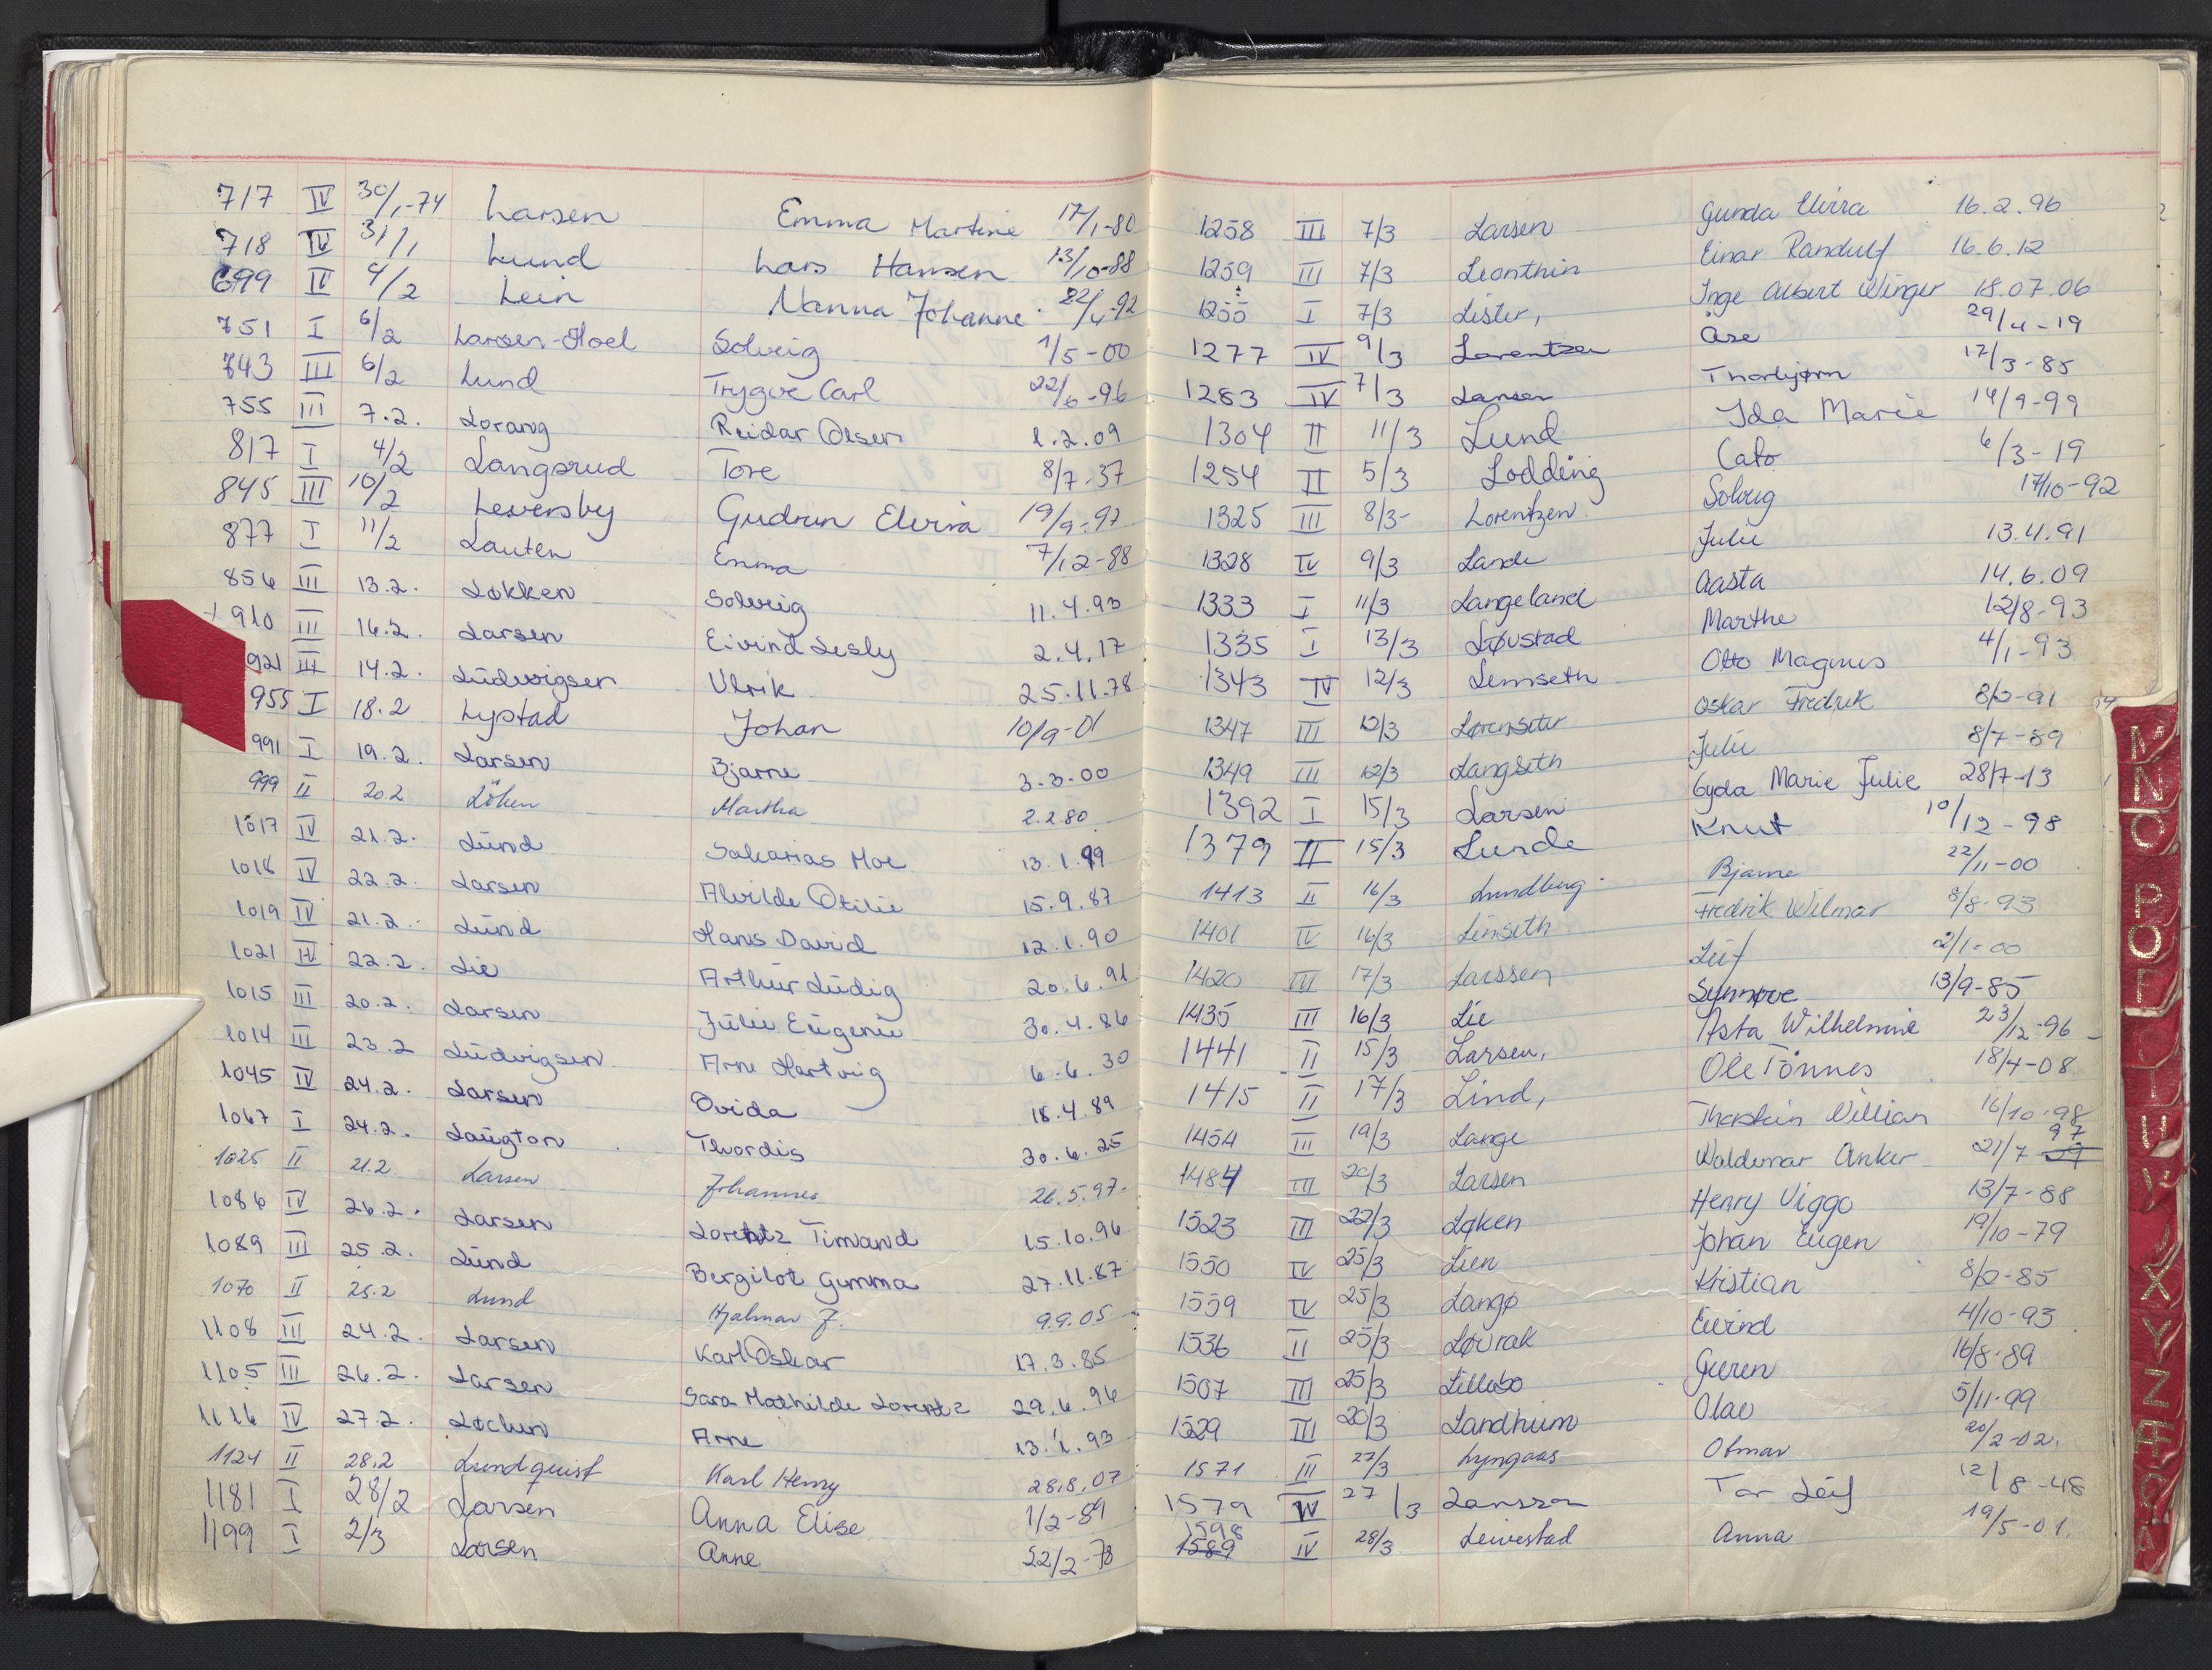 717 IV 30/1-74 Larsen Emma Martine 17/1-80
718 IV 31/1 Lund Lars Hansen 13/10-88
699 IV 4/2 Lein Nanna Johanne 22/4-92
751 I 6/2 Larsen-Hoel Solveig 1/5-00
743 III 6/2 Lund Trygve Carl 22/6-96
755 III 7.2. Lorang Reidar Olsen 1.2.09
817 I 4/2 Langsrud Tore 8/7-37
845 III 10/2 Leversby Gudrun Elvira 19/9-97
877 I 11/2 Lauten Emma 7/12-88
856 III 13.2. Løkken Solveig 11.4.93
910 III 16.2. Larsen Eivind Lesly 2.4.17
921 III 14.2. Ludvigsen Ulrik 25.11.78
955 I 18.2 Lystad Johan 10/9-01
991 I 19.2. Larsen Bjarne 3.3.00
999 II 20.2 Löken Martha 2.2.80
1017 IV 21.2. Lund Sakarias Moe 13.1.99
1018 IV 22.2. Larsen Alvilde Otilie 15.9.87
1019 IV 21.2. Lund Hans David 12.1.90
1021 IV 22.2. Lie Arthur Ludig 20.6.91
1015 III 20.2. Larsen Julie Eugenie 30.4.86
1014 III 23.2 Ludvigsen Arne Hartvig 6.6.30
1045 IV 24.2. Larsen Ovida 18.4.89
1067 I 24.2. Laugton Thordis 30.6.25
1025 II 21.2. Larsen Johannes 26.5.97.
1086 IV 26.2. Larsen Lorentz Timand 15.10.96
1089 III 25.2. Lund Bergilot Gemma 27.11.87
1070 II 25.2 Lund Hjalmar J. 9.9.05
1108 III 24.2. Larsen Karl Oskar 17.3.85
1105 III 26.2. Larsen Sara Mathilde Lorentz 29.6.96
1116 IV 27.2. Lochen Arne 13.1.93
1124 II 28.2 Lundquist Karl Henry 28.8.07
1181 I 28/2 Larsen Anna Elise 1/2-89
1199 I 2/3 Larsen Anne 22/2-78
1258 III 7/3 Larsen Gunda Elvira 16.2.96
1259 III 7/3 Leonthin Einar Randulf 16.6.12
1255 I 7/3 Lister, Inge Albert Winger 18.07.06
1277 IV 9/3 Lorentzen Åse 29/4-19
1283 IV 7/3 Larsen Thorbjørn 17/3-85
1304 II 11/3 Lund Ida Marie 14/9-99
1254 II 5/3 Lodding Cato 6/3-19
1325 III 8/3- Lorentzen Solveig 17/10-92
1328 IV 9/3 Lande Julie 13.4.91
1333 I 11/3 Langeland Aasta 14.6.09
1335 I 13/3 Løvstad Marthe 12/8-93
1343 IV 12/3 Lemseth Otto Magnus 4/1-93
1347 III 12/3 Lørenseter Oskar Fredrik 8/2-91
1349 III 12/3 Langseth Julie 8/7-89
1392 I 15/3 Larsen Gyda Marie Julie 28/7-13
1379 II 15/3 Lunde Knut 10/12-98
1413 II 16/3 Lundberg Bjarne 22/11-00
1401 IV 16/3 Linseth Fredrik Wilmar 8/8-93
1420 III 17/3 Larssen Leif 2/1-00
1435 III 16/3 Lie Synnøve 13/9-85
1441 II 15/3 Larsen, Asta Wilhelmine 23/12-96
1415 II 17/3 Lind, Ole Tönnes 18/4-08
1454 III 19/3 Lange Thorstein William 16/10-98
1484 III 20/3 Larsen Waldemar Anker 21/7 97
1523 III 22/3 Løken Henry Viggo 13/7-88
1550 IV 25/3 Lien Johan Eugen 19/10-79
1559 IV 25/3 Langø Kristian 8/2-85
1536 II 25/3 Løvrak Eivind 4/10-93
1507 III 25/3 Lillebo Guren 16/8-89
1529 III 20/3 Landheim Olav 5/11-99
1571 III 27/3 Lyngaas Otmar 20/2-02.
1579 IV 27/3 Larsson Tor Leif 12/8-48
1598
1589 IV 28/3 Leivestad Anna 19/5-01
N
O
P